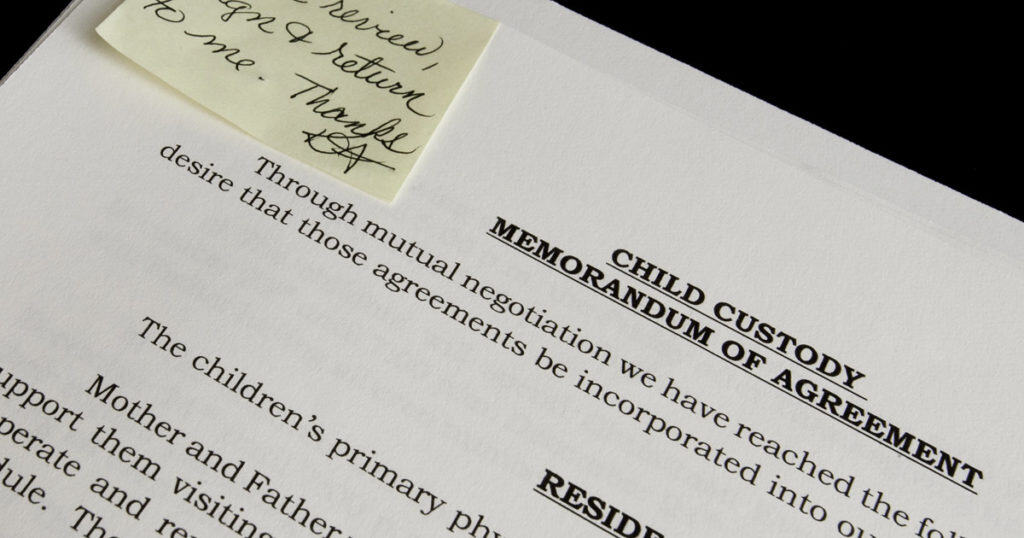 review,
& return
to me. Thanks
CHILD CUSTODY
MEMORANDUM OF AGREEMENT
Through mutual negotiation we have reached the
desire that those agreements be incorporated into
RESIDE
The children's primary
Mother and Father
upport them visiting
perate and
dule. The